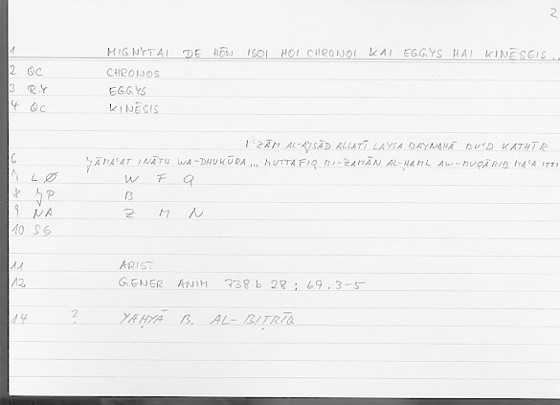 2
1 MIGNYTAI DE HŌN ISOI HOI CHRONOI KAI EGGYS HAI KINĒSEIS ..
2 QC CHRONOS
3 RY EGGYS
4 QC KINĒSIS
AL-AǦSĀD ALLATĪ LAYSA BAYNAHĀ BUʿD KATHĪR
6 ǦĀMAʿAT INĀTH WA-DHUKŪRA ... MUTTAFIQ BI-ZAMĀN AL-ḤAML AW-MUQĀRIB MAʿA
7 LØ W F Q
8 ǦP B
9 NA Z M N
10 SG
11 ARIST
12 GENER ANIM 738 b 28 ; 69.3-5
14 ? YAḤYĀ B. AL-BIṬRĪQ